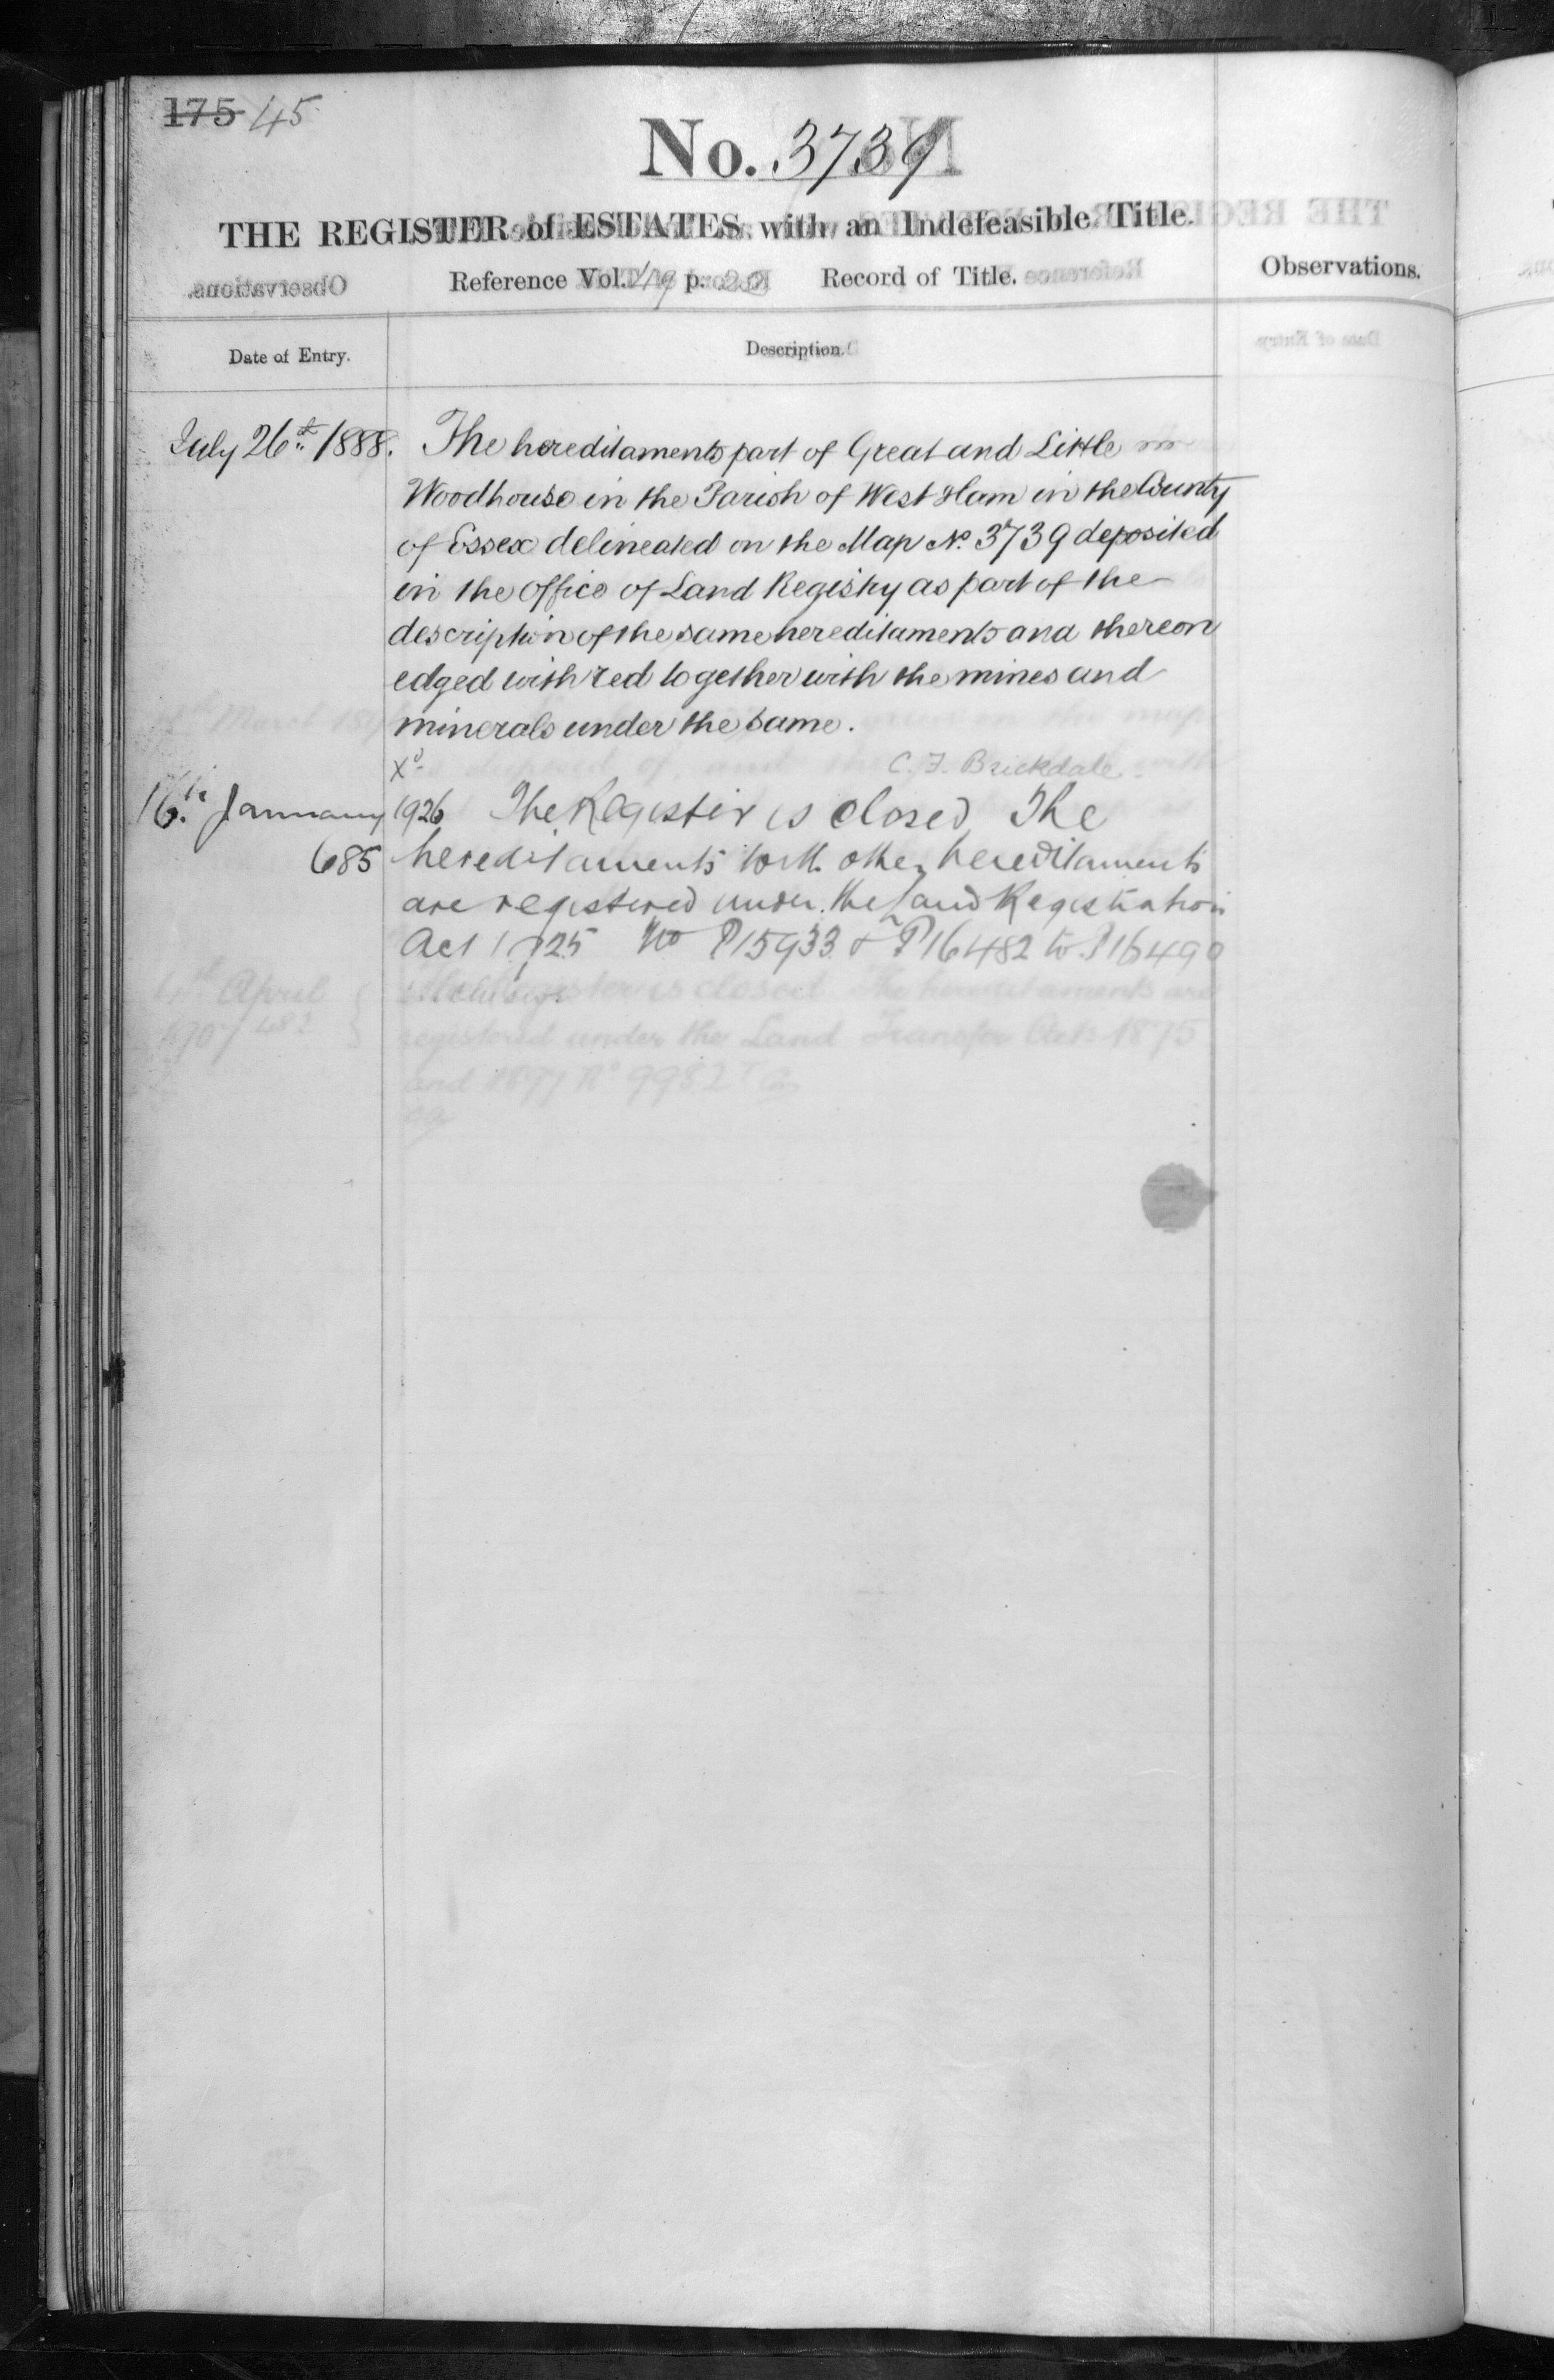 175 45
No. 3739
THE REGISTER of ESTATES with an Indefeasible Title.
Reference Vol. 49 p. Record of Title.
Observations.
Date of Entry.
Description.
July 26th 1888. The hereditaments part of Great and Little
Woodhouse in the Parish of West Ham in the County
of Essex delineated on the Map No. 3739 deposited
in the Office of Land Registry as part of the
description of the same hereditaments and thereon
edged with red together with the mines and
minerals under the same.
C. F. Brickdale
16th January 1926 The Register is closed The
685 hereditaments with other hereditaments
are registered under the Land Registration
Act 1925 No P15933 & P16482 to P16490
inclusive